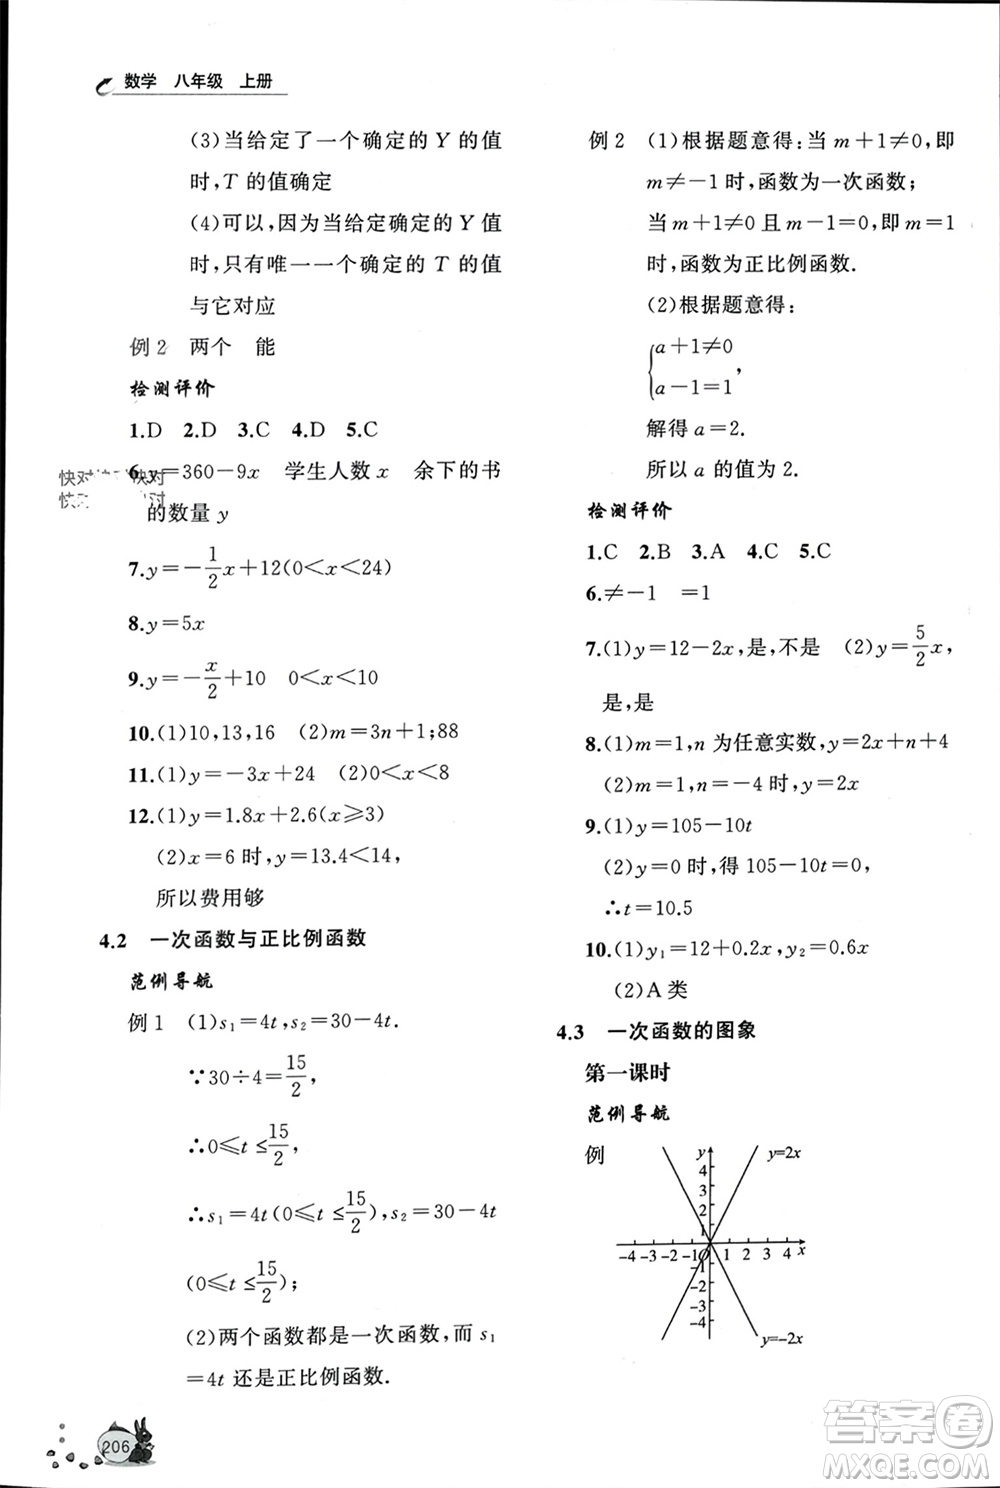 数学 八年级 上册
(3)当给定了一个确定的 Y 的值
时,T 的值确定
(4)可以,因为当给定确定的 Y 值
时,只有唯一一个确定的 T 的值
与它对应
例 2 两个 能
检测评价
1.D 2.D 3.C 4.D 5.C
6.y=360-9x 学生人数 x 余下的书
的数量 y
7.y=-\frac{1}{2}x+12(0<x<24)
8.y=5x
9.y=-\frac{x}{2}+10 0<x<10
10.(1)10,13,16 (2)m=3n+1;88
11.(1)y=-3x+24 (2)0<x<8
12.(1)y=1.8x+2.6(x≥3)
(2)x=6 时,y=13.4<14,
所以费用够
4.2 一次函数与正比例函数
范例导航
例 1 (1)s₁=4t,s₂=30-4t.
∵30÷4=\frac{15}{2},
∴0≤t≤\frac{15}{2},
∴s₁=4t(0≤t≤\frac{15}{2}),s₂=30-4t
(0≤t≤\frac{15}{2});
(2)两个函数都是一次函数,而 s₁
=4t 还是正比例函数.
206
例 2 (1)根据题意得:当 m+1≠0,即
m≠-1 时,函数为一次函数;
当 m+1≠0 且 m-1=0,即 m=1
时,函数为正比例函数.
(2)根据题意得:
{a+1≠0
a-1=1,
解得 a=2.
所以 a 的值为 2.
检测评价
1.C 2.B 3.A 4.C 5.C
6.≠-1 =1
7.(1)y=12-2x,是,不是 (2)y=\frac{5}{2}x,
是,是
8.(1)m=1,n 为任意实数,y=2x+n+4
(2)m=1,n=-4 时,y=2x
9.(1)y=105-10t
(2)y=0 时,得 105-10t=0,
∴t=10.5
10.(1)y₁=12+0.2x,y₂=0.6x
(2)A 类
4.3 一次函数的图象
第一课时
范例导航
例
y
y=2x
4
3
2
1
-4 -3 -2 -1 O 1 2 3 4 x
-1
-2
-3
-4
y=-2x
答案圈
MXQE.COM